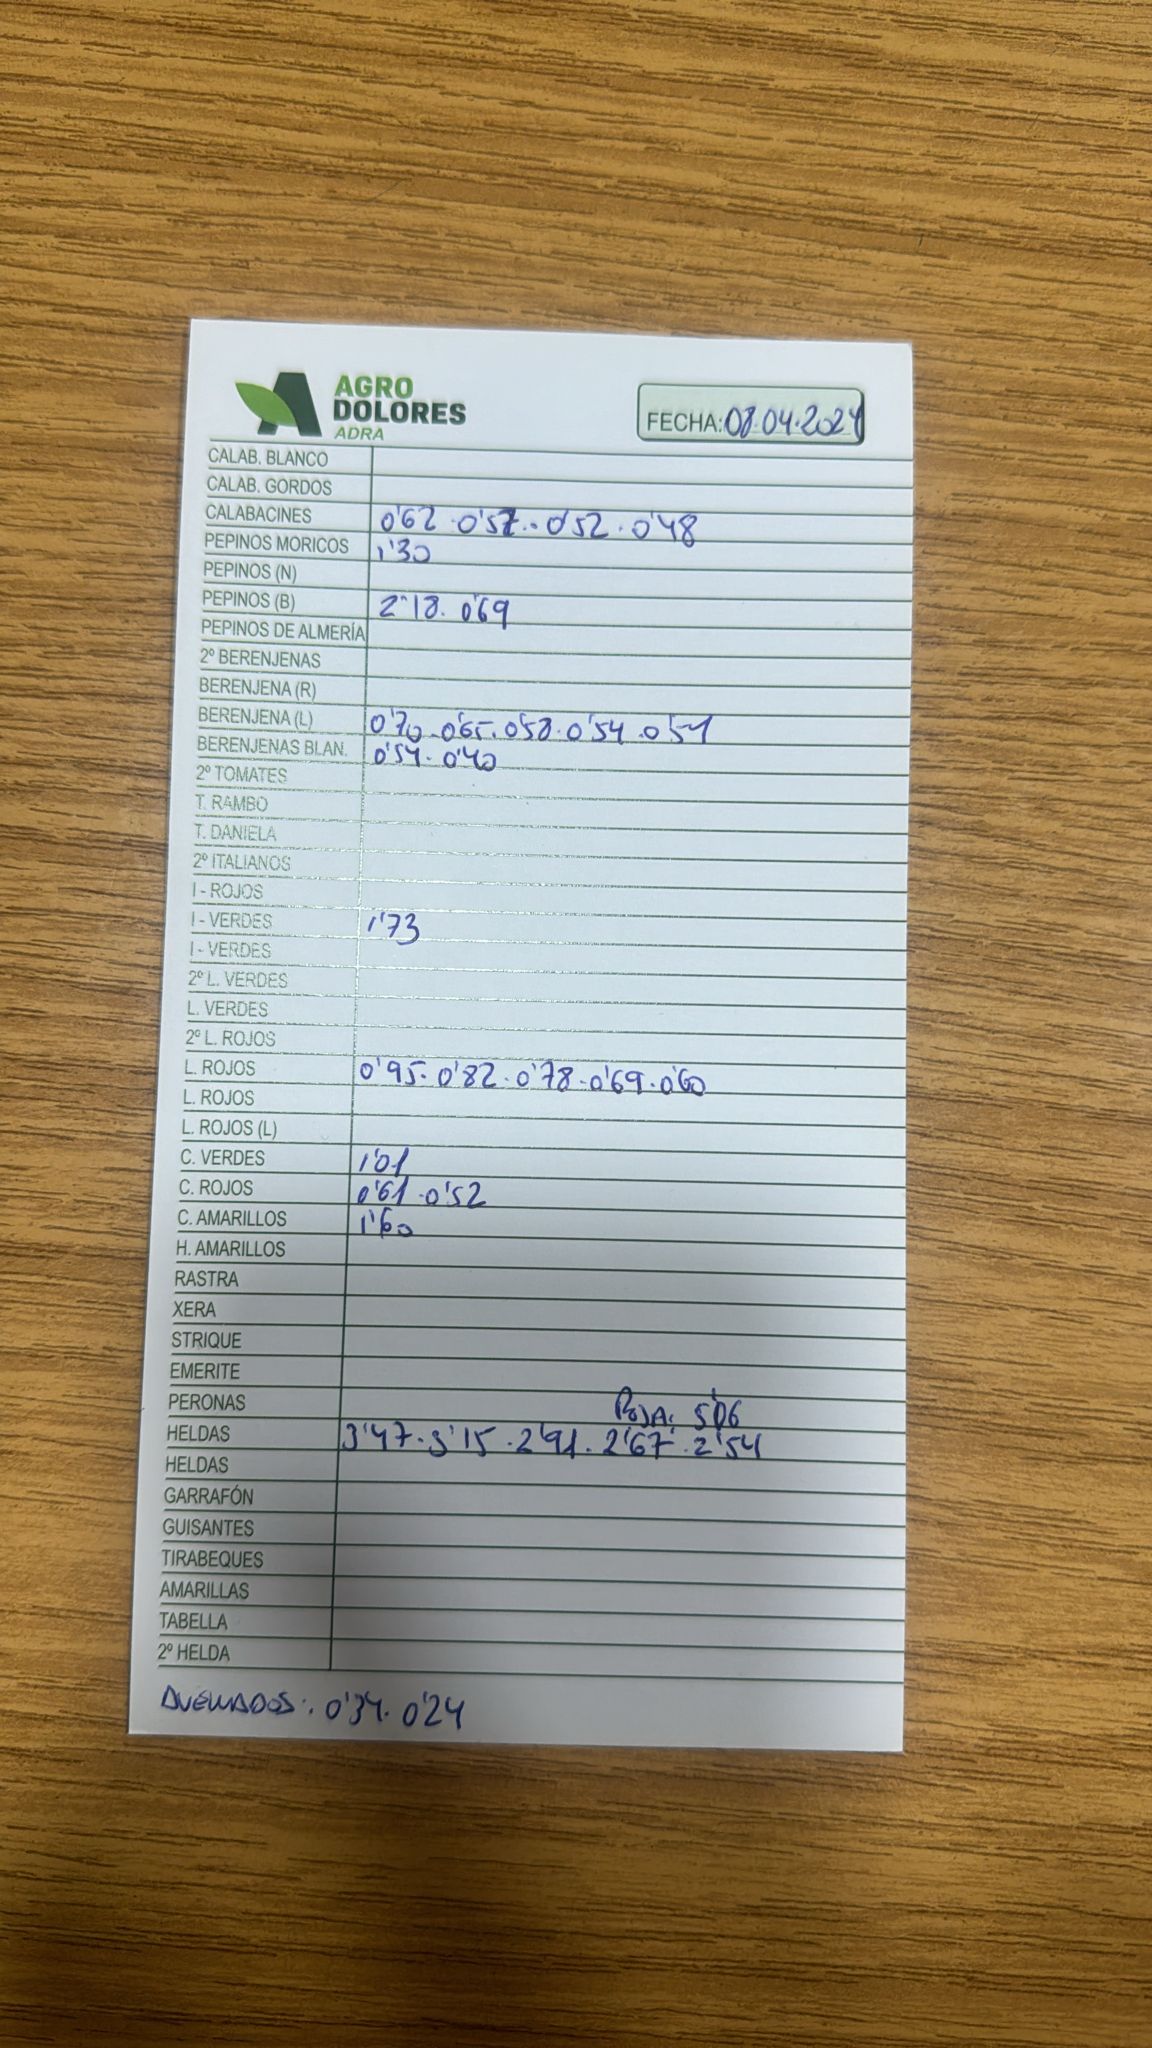 AGRO
DOLORES
ADRA
FECHA: 08.04.2024
CALAB. BLANCO
CALAB. GORDOS
CALABACINES 0'62 · 0'57 · 0'52 · 0'48
PEPINOS MORICOS 1'30
PEPINOS (N)
PEPINOS (B) 2'18 · 0'69
PEPINOS DE ALMERÍA
2º BERENJENAS
BERENJENA (R)
BERENJENA (L) 0'70 · 0'65 · 0'58 · 0'54 · 0'51
BERENJENAS BLAN. 0'54 · 0'40
2º TOMATES
T. RAMBO
T. DANIELA
2º ITALIANOS
I - ROJOS
I - VERDES 1'73
I - VERDES
2º L. VERDES
L. VERDES
2º L. ROJOS
L. ROJOS 0'95 · 0'82 · 0'78 · 0'69 · 0'60
L. ROJOS
L. ROJOS (L)
C. VERDES 1'01
C. ROJOS 0'61 · 0'52
C. AMARILLOS 1'60
H. AMARILLOS
RASTRA
XERA
STRIQUE
EMERITE
PERONAS ROJA: 5'06
HELDAS 3'47 · 3'15 · 2'91 · 2'67 · 2'54
HELDAS
GARRAFÓN
GUISANTES
TIRABEQUES
AMARILLAS
TABELLA
2º HELDA
AVELLADOS: 0'34 · 0'24